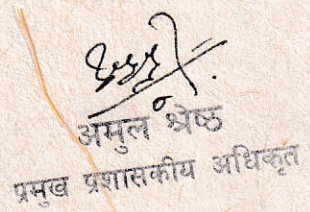 अमुल श्रेष्ठ
प्रमुख प्रशासकीय अधिकृत